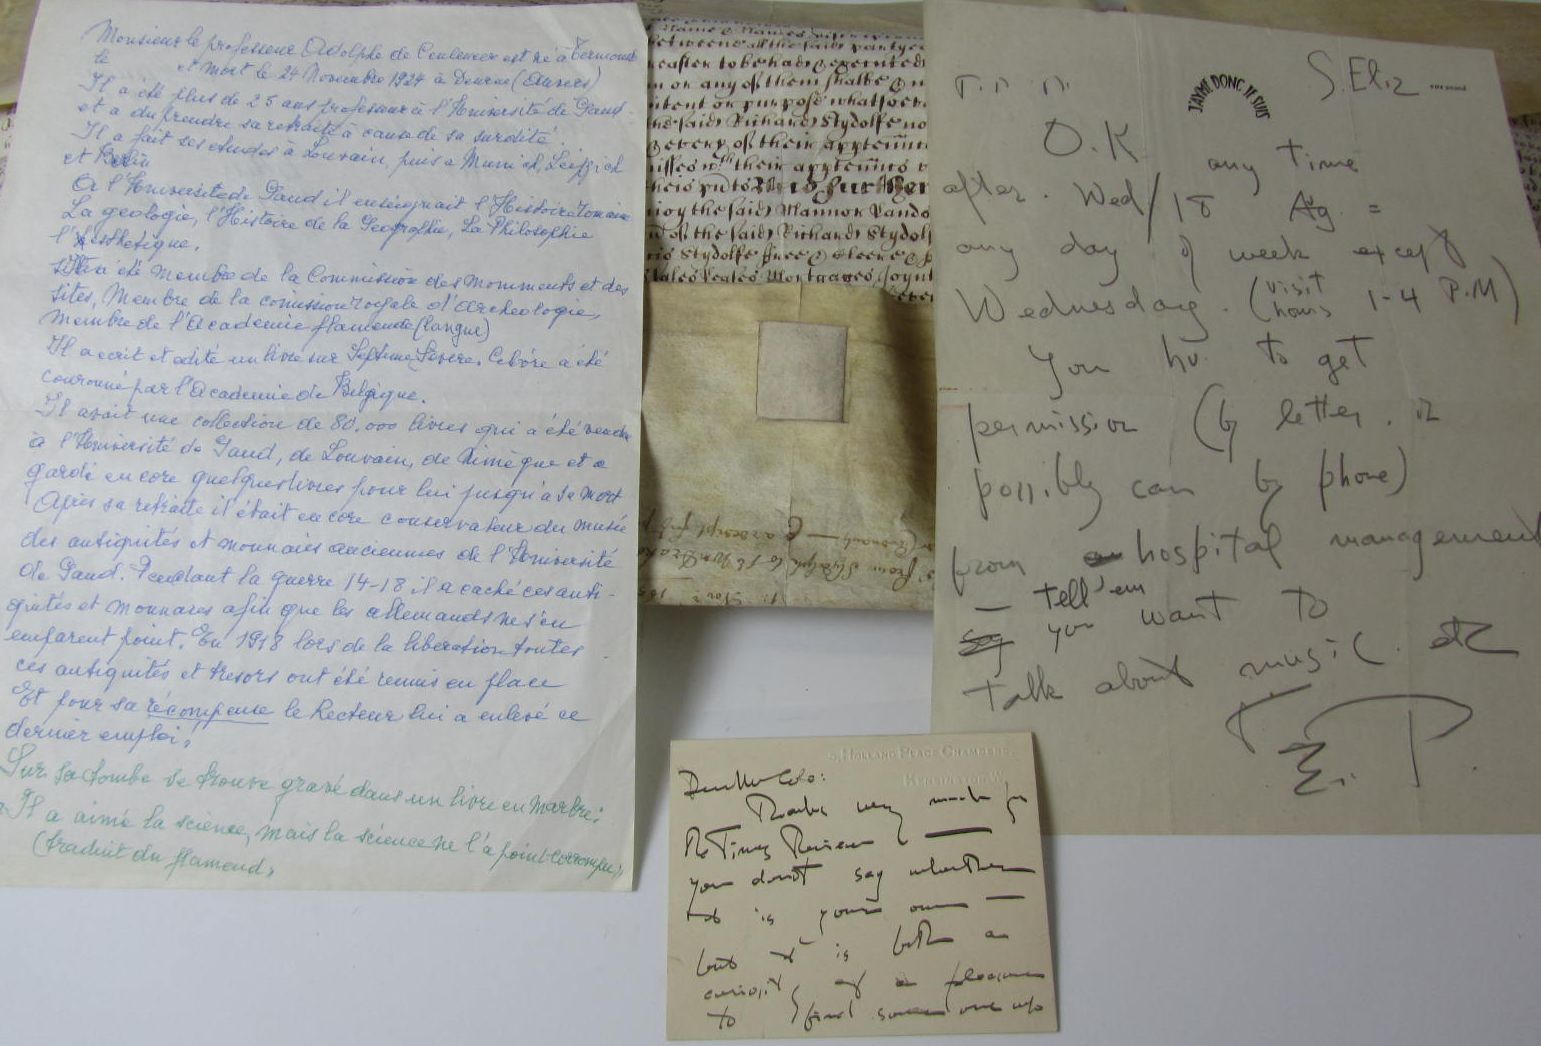 Monsieur le professeur Adolphe de Ceuleneer est né à Termonde
le et mort le 24 Novembre 1924 à Deurne (Anvers)
Il a été plus de 25 ans professeur à l'Université de Gand
et a du prendre sa retraite à cause de sa surdité.
Il a fait ses études à Louvain, puis a Munich, Leipzich
et Berlin
A l'Université de Gand il enseignait l'Histoire romaine
La geologie, l'Histoire de la Geographie, La Philosophie
l'Esthetique.
a été membre de la Commission des Monuments et des
sites, Membre de la comission royale d'Archeologie,
membre de l'Academie flamende (langue)
Il a ecrit et edité un livre sur Septime Severe. Ce livre a été
couronné par l'Academie de Belgique.
Il avait une collection de 80.000 livres qui a été vendue
à l'Université de Gand, de Louvain, de Nimègue et a
gardé encore quelques livres pour lui jusqu'à sa mort
Après sa retraite il était encore conservateur du musée
des antiquités et monnaies anciennes de l'Université
de Gand. Pendant la guerre 14-18 il a caché ces anti-
quités et monnaies afin que les allemands ne s'en
emparent point. En 1918 lors de la libération toutes
ces antiquités et tresors ont été remis en place
Et pour sa récompense le Recteur lui a enlevé ce
dernier emploi.
Sur sa tombe se trouve gravé dans un livre en marbre:
Il a aimé la science, mais la science ne l'a point corrompu,
(traduit du flamand,
betweene all the said partyes
or any of them shalbe
intent or purpose whatsoever
the said Richard Stydolfe
theis appertenances
the said Mannor
of the said Richard Stydolf
J'AYME DONC JE SUIS
S. Eliz
O.K any time
after. Wed/18 Ag. =
any day of week except
Wednesday. (visit hours 1-4 P.M)
You hv. to get
permission (by letter. or
possibly can by phone)
from hospital management
— tell 'em
you want to
talk about music. etc
E. P.
5, HOLLAND PLACE CHAMBERS,
KENSINGTON. W.
Thanks very much for
the Times Review —
you don't say whether
it is your own —
but it is both a
curiosity & a pleasure
to find some one who